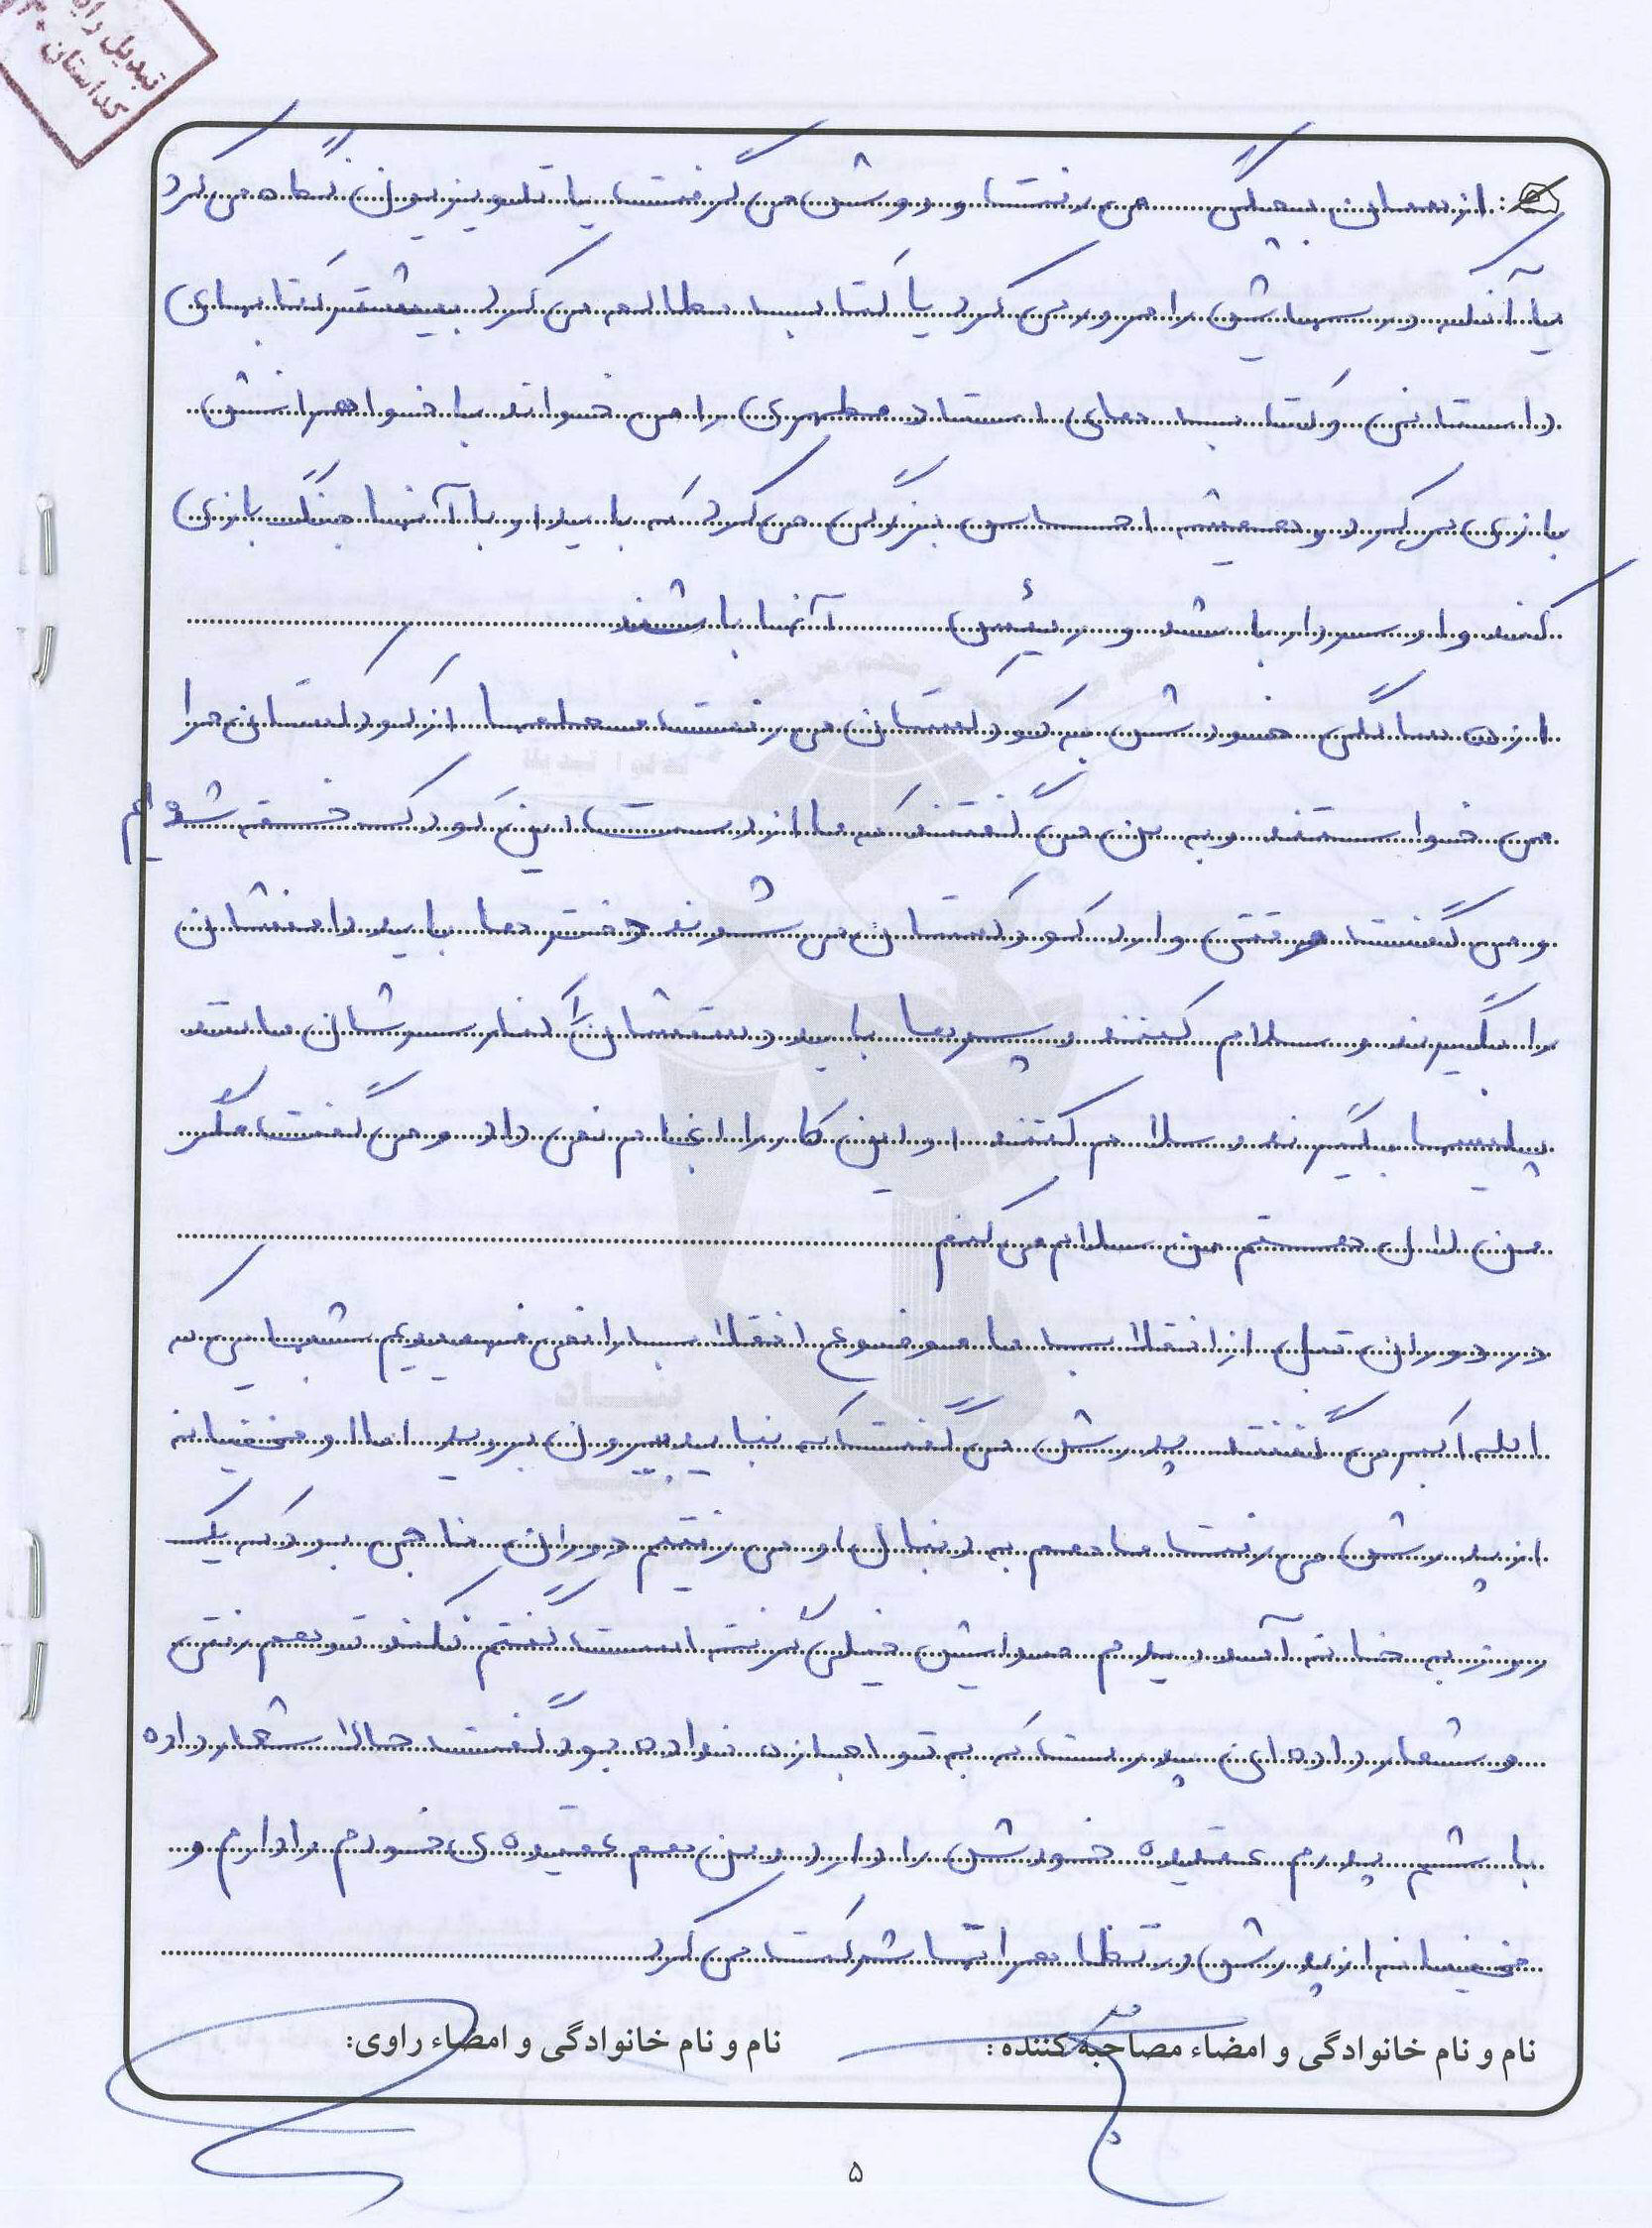 تبدیل
کداستان
: از همان بچگی می رفت و دوش می گرفت یا تلویزیون نگاه می کرد
یا آنکه درسهایش را مرور می کرد یا کتاب مطالعه می کرد بیشتر کتابهای
داستانی و کتاب های استاد مطهری را می خواند با خواهرانش
بازی می کرد و همیشه احساس بزرگی می کرد که باید او با آنها جنگ بازی
کند و او سردار باشد و رئیس آنها باشد
از ۵ سالگی خودش به کودکستان می رفت معلمها از کودکستان مرا
می خواستند و به من می گفتند که ما از دست این کودک خسته شده ایم
و می گفت وقتی وارد کودکستان می شوند دختر ها باید دامنشان
را بگیرند و سلام کنند و پسرها باید دستشان را کنار سرشان مانند
پلیسها بگیرند و سلام کنند او این کار را انجام نمی داد و می گفت مگر
من لال هستم من سلام می کنم
در دوران قبل از انقلاب ما موضوع انقلاب را نمی فهمیدیم شبهایی که
الله اکبر می گفتند پدرش می گفت که نباید بیرون بروید اما او مخفیانه
از پدرش می رفت ما هم به دنبال او می رفتیم دوران ناجی بود که یک
روز به خانه آمد دیدم صدایش خیلی گرفته است گفتم نکند تو هم رفتی
و شعار داده ای پدرت که به تو اجازه نداده بود گفت حالا شعار داده
باشم پدرم عقیده خودش را دارد و من هم عقیده ی خودم را دارم و
مخفیانه از پدرش در تظاهرات شرکت می کرد
نام و نام خانوادگی و امضاء مصاحبه کننده : نام و نام خانوادگی و امضاء راوی:
۵